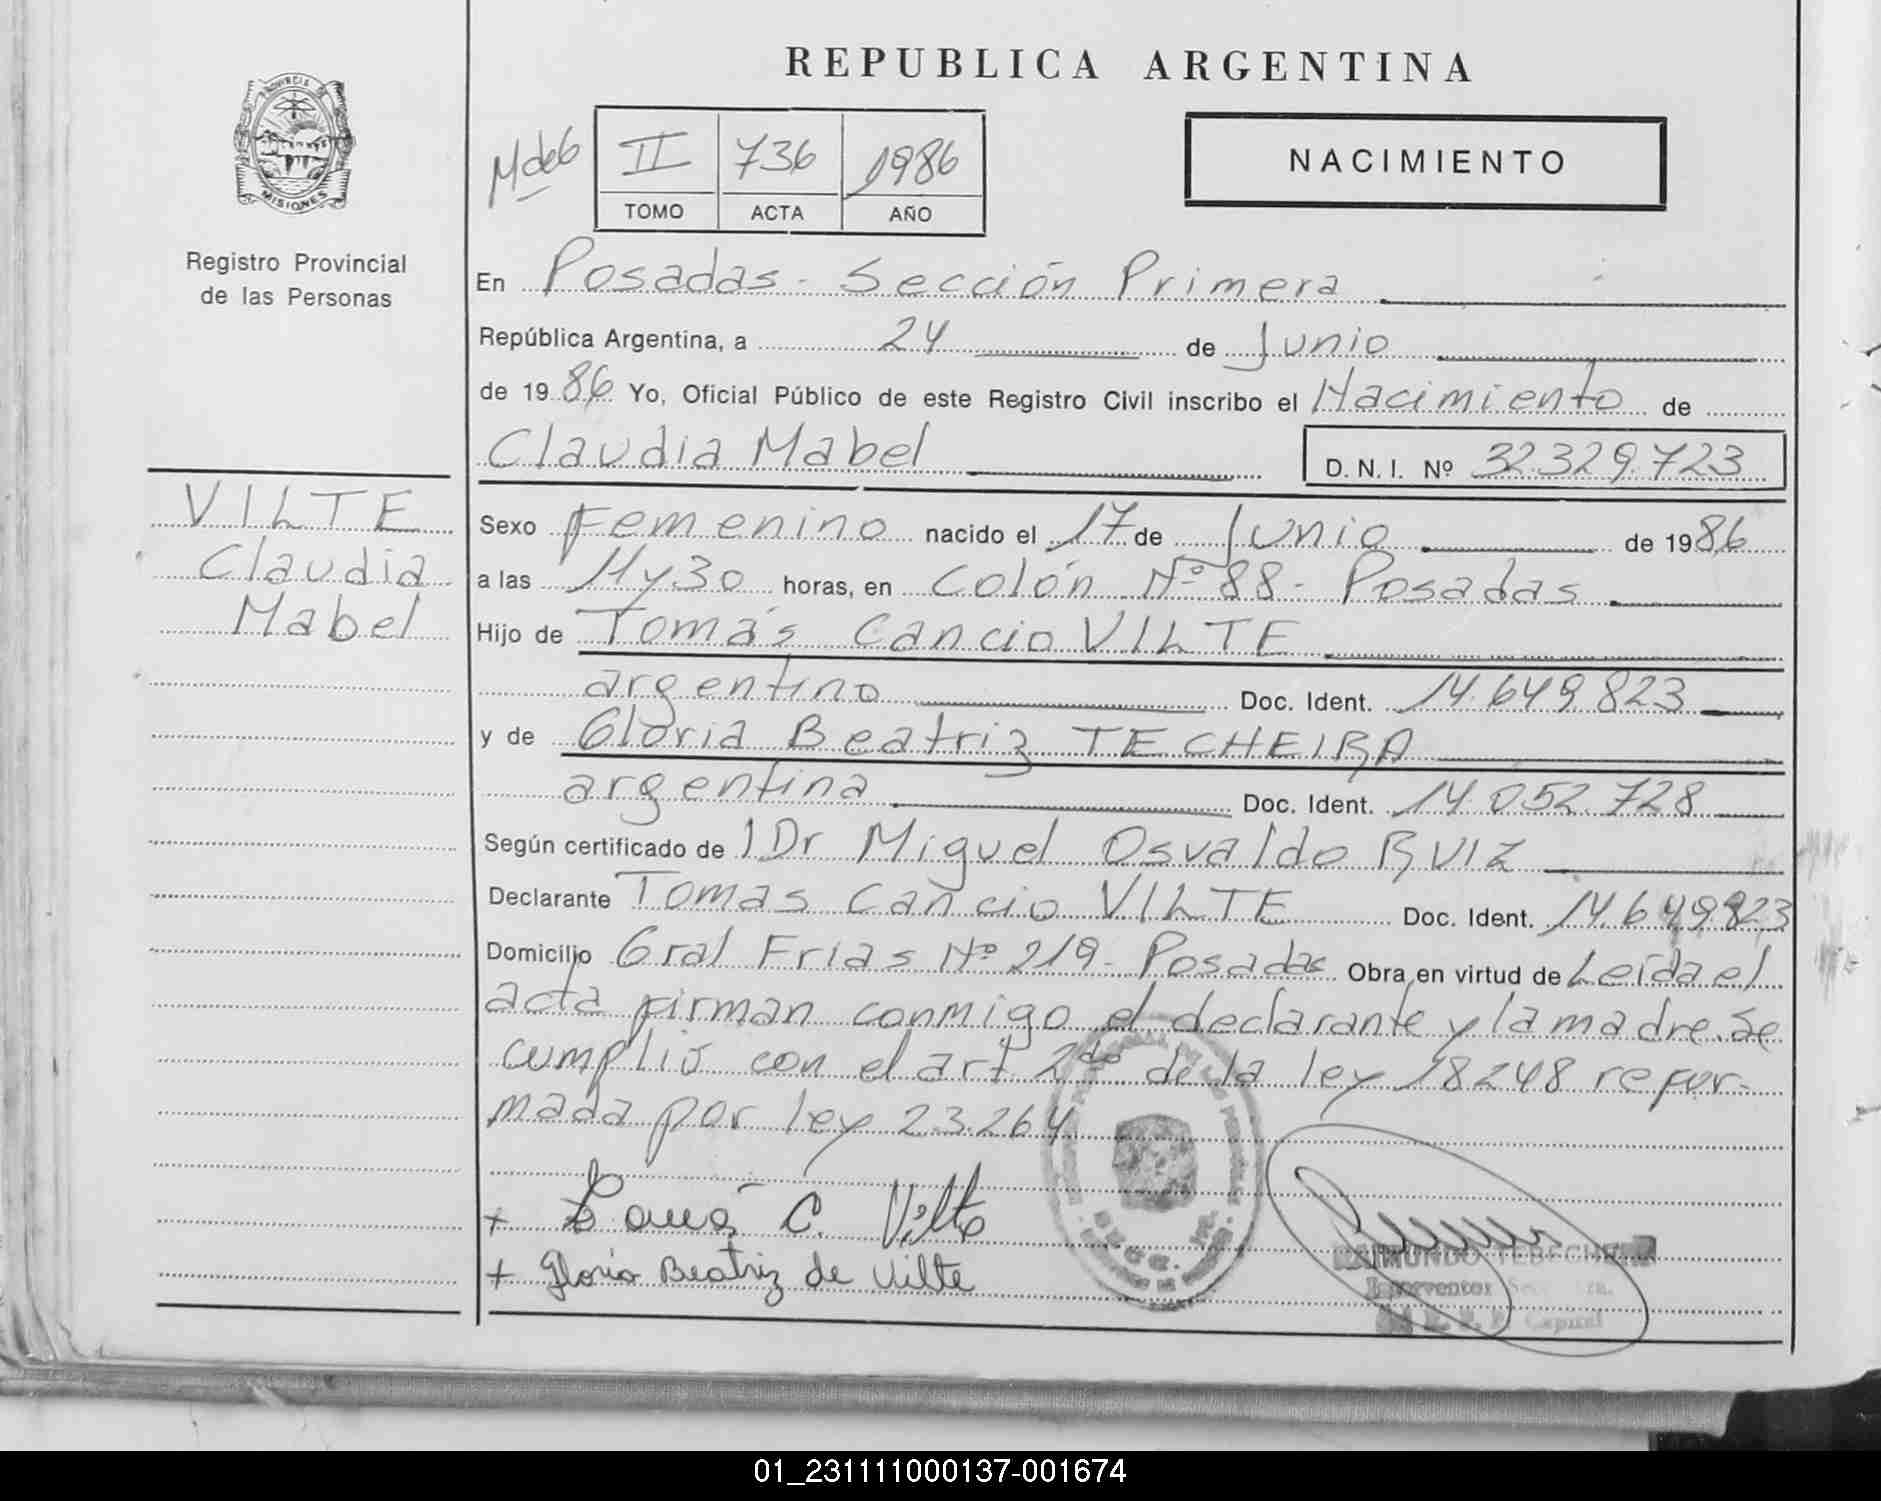 REPUBLICA ARGENTINA
PROVINCIA DE
MISIONES
Registro Provincial
de las Personas
II 736 1986
TOMO ACTA AÑO
NACIMIENTO
En Posadas - Sección Primera
República Argentina, a 24 de Junio
de 1986 Yo, Oficial Público de este Registro Civil inscribo el Nacimiento de
Claudia Mabel D. N. I. Nº 32.329.723
VILTE
Claudia
Mabel
Sexo Femenino nacido el 17 de Junio de 1986
a las 11 y 30 horas, en Colón Nº 88 - Posadas
Hijo de Tomás Cancio VILTE
argentino Doc. Ident. 14.649.823
y de Gloria Beatriz TECHEIRA
argentina Doc. Ident. 14.052.728
Según certificado de 1 Dr Miguel Osvaldo RUIZ
Declarante Tomas Cancio VILTE Doc. Ident. 14.649.823
Domicilio Gral Frias Nº 219 - Posadas Obra en virtud de Leída el
acta firman conmigo el declarante y la madre. Se
cumplió con el art 2do de la ley 18248 refor-
mada por ley 23.264
+ Tomás C. Vilte
+ Gloria Beatriz de Vilte
RAIMUNDO TEBECHE
Interventor
Capital
01_231111000137-001674